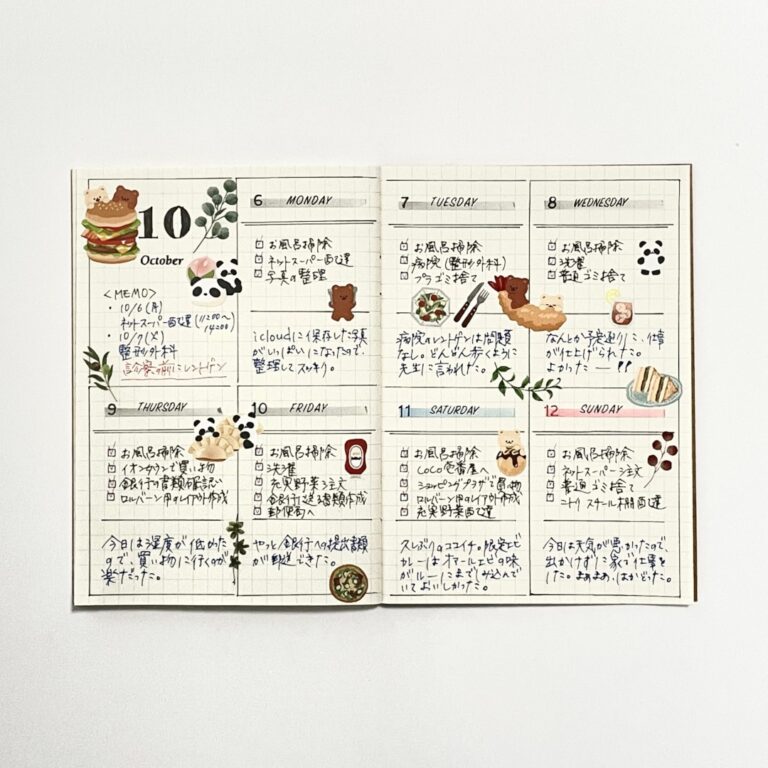 10
October
<MEMO>
・10/6(月)
ネットスーパー配達(11:00〜
14:00)
・10/7(火)
整形外科
診察の前にレントゲン
6 MONDAY
お風呂掃除
ネットスーパー配達
写真の整理
icloudに保存した写真
がいっぱいになったので、
整理してスッキリ。
7 TUESDAY
お風呂掃除
病院(整形外科)
プラゴミ捨て
病院のレントゲンは問題
なし。どんどん歩くように
先生に言われた。
8 WEDNESDAY
お風呂掃除
洗濯
普通ゴミ捨て
なんとか予定通りに、仕事
が仕上げられた。
よかったー!!
9 THURSDAY
お風呂掃除
イオンタウンで買い物
銀行の書類確認
ロルバーン用のレイアウト作成
今日は湿度が低かった
ので、買い物に行くのが
楽だった。
10 FRIDAY
お風呂掃除
洗濯
充実野菜注文
銀行に送る書類作成
郵便局へ
やっと銀行への提出書類
が郵送できた。
11 SATURDAY
お風呂掃除
CoCo壱番屋へ
ショッピングプラザで買い物
ロルバーン用のレイアウト作成
充実野菜配達
久しぶりのココイチ。限定エビ
カレーはオマールエビの味
がルーにまでしみ込んで
いておいしかった。
12 SUNDAY
お風呂掃除
ネットスーパー注文
普通ゴミ捨て
ニトリ スチール棚配達
今日は天気が悪かったので、
出かけずに家で仕事を
した。まあまあ、はかどった。